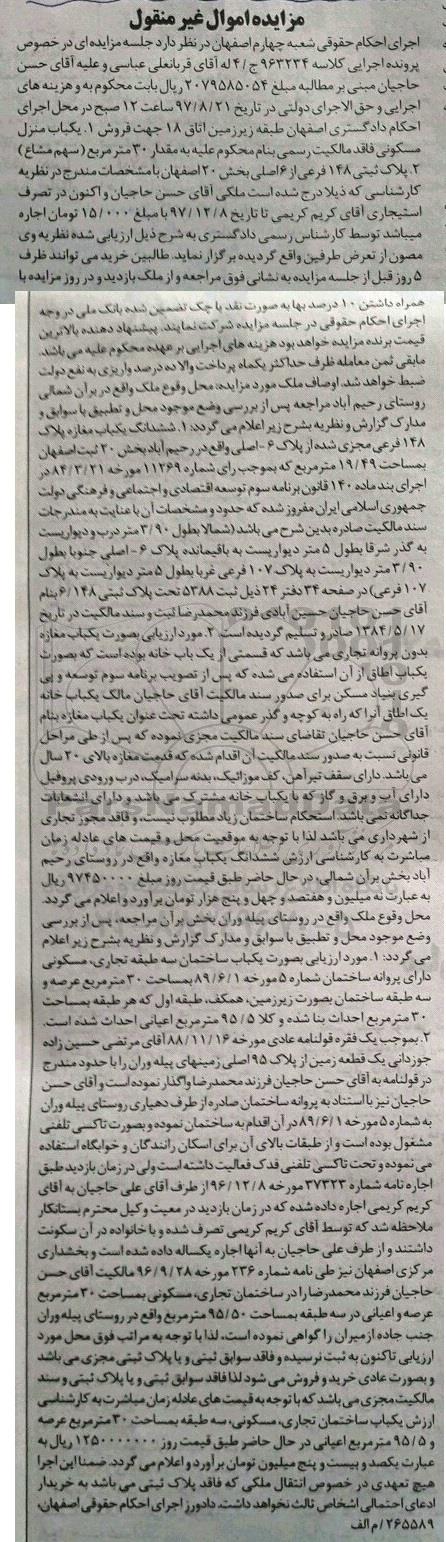 مزایده اموال غیر منقول
اجرای احکام حقوقی شعبه چهارم اصفهان در نظر دارد جلسه مزایده ای در خصوص
پرونده اجرایی کلاسه ۹۶۳۲۳۴ ج/۴ له آقای قربانعلی عباسی و علیه آقای حسن
حاجیان مبنی بر مطالبه مبلغ ۲۰۷۹۵۸۵۰۵۴ ریال بابت محکوم به و هزینه های
اجرایی و حق الاجرای دولتی در تاریخ ۹۷/۸/۲۱ ساعت ۱۲ صبح در محل اجرای
احکام دادگستری اصفهان طبقه زیرزمین اتاق ۱۸ جهت فروش ۱. یکباب منزل
مسکونی فاقد مالکیت رسمی بنام محکوم علیه به مقدار ۳۰ متر مربع (سهم مشاع)
۲. پلاک ثبتی ۱۴۸ فرعی از ۶ اصلی بخش ۲۰ اصفهان با مشخصات مندرج در نظریه
کارشناسی که ذیلا درج شده است ملکی آقای حسن حاجیان و اکنون در تصرف
استیجاری آقای کریم کریمی تا تاریخ ۹۷/۱۲/۸ با مبلغ ۱۵/۰۰۰ تومان اجاره
میباشد توسط کارشناس رسمی دادگستری به شرح ذیل ارزیابی شده نظریه وی
مصون از تعرض طرفین واقع گردیده برگزار نماید. طالبین خرید می توانند ظرف
۵ روز قبل از جلسه مزایده به نشانی فوق مراجعه و از ملک بازدید و در روز مزایده با
همراه داشتن ۱۰ درصد بها به صورت نقد یا چک تضمین شده بانک ملی در وجه
اجرای احکام حقوقی در جلسه مزایده شرکت نمایند. پیشنهاد دهنده بالاترین
قیمت برنده مزایده خواهد بود هزینه های اجرایی بر عهده محکوم علیه می باشد.
مابقی ثمن معامله ظرف حداکثر یکماه پرداخت والا ده درصد واریزی به نفع دولت
ضبط خواهد شد. اوصاف ملک مورد مزایده: محل وقوع ملک واقع در برآن شمالی
روستای رحیم آباد مراجعه پس از بررسی وضع موجود محل و تطبیق با سوابق و
مدارک گزارش و نظریه بشرح زیر اعلام می گردد: ۱. ششدانگ یکباب مغازه پلاک
۱۴۸ فرعی مجزی شده از پلاک ۶-اصلی واقع در رحیم آباد بخش ۲۰ ثبت اصفهان
بمساحت ۱۹/۴۹ مترمربع که بموجب رای شماره ۱۱۲۶۹ مورخه ۸۴/۳/۲۱ در
اجرای بند ماده ۱۴۰ قانون برنامه سوم توسعه اقتصادی و اجتماعی و فرهنگی دولت
جمهوری اسلامی ایران مفروز شده که حدود و مشخصات آن با عنایت به مندرجات
سند مالکیت صادره بدین شرح می باشد (شمالا بطول ۳/۹۰ متر درب و دیواریست
به گذر شرقا بطول ۵ متر دیواریست به باقیمانده پلاک ۶-اصلی جنوبا بطول
۳/۹۰ متر دیواریست به پلاک ۱۰۷ فرعی غربا بطول ۵ متر دیواریست به پلاک
۱۰۷ فرعی) در صفحه ۳۴ دفتر ۲۴ ذیل ثبت ۵۳۸۸ تحت پلاک ثبتی ۶/۱۴۸ بنام
آقای حسن حاجیان حسین آبادی فرزند محمدرضا ثبت و سند مالکیت در تاریخ
۱۳۸۴/۵/۱۷ صادر و تسلیم گردیده است. ۲. مورد ارزیابی بصورت یکباب مغازه
بدون پروانه تجاری می باشد که قسمتی از یک باب خانه بوده است که بصورت
یکباب اطاق از آن استفاده می شده که پس از تصویب برنامه سوم توسعه و پی
گیری بنیاد مسکن برای صدور سند مالکیت آقای حاجیان مالک یکباب خانه
یک اطاق آنرا که راه به کوچه و گذر عمومی داشته تحت عنوان یکباب مغازه بنام
آقای حسن حاجیان تقاضای سند مالکیت مجزی نموده که پس از طی مراحل
قانونی نسبت به صدور سند مالکیت آن اقدام شده که قدمت مغازه بالای ۲۰ سال
می باشد. دارای سقف تیرآهن، کف موزائیک، بدنه سرامیک، درب ورودی پروفیل
دارای آب و برق و گاز که با یکباب خانه مشترک می باشد و دارای انشعابات
جداگانه نمی باشد. استحکام ساختمان زیاد مطلوب نیست، و فاقد مجوز تجاری
از شهرداری می باشد لذا با توجه به موقعیت محل و قیمت های عادله زمان
مباشرت به کارشناسی ارزش ششدانگ یکباب مغازه واقع در روستای رحیم
آباد بخش برآن شمالی، در حال حاضر طبق قیمت روز مبلغ ۹۷۴۵۰۰۰۰ ریال
به عبارت نه میلیون و هفتصد و چهل و پنج هزار تومان برآورد و اعلام می گردد.
محل وقوع ملک واقع در روستای پیله وران بخش برآن مراجعه، پس از بررسی
وضع موجود محل و تطبیق با سوابق و مدارک گزارش و نظریه بشرح زیر اعلام
می گردد: ۱. مورد ارزیابی بصورت یکباب ساختمان سه طبقه تجاری، مسکونی
دارای پروانه ساختمان شماره ۵ مورخه ۸۹/۶/۱ بمساحت ۳۰ مترمربع عرصه و
سه طبقه ساختمان بصورت زیرزمین، همکف، طبقه اول که هر طبقه بمساحت
۳۰ مترمربع احداث بنا شده و کلا ۹۵/۵ مترمربع اعیانی احداث شده است.
۲. بموجب یک فقره قولنامه عادی مورخه ۸۸/۱۱/۱۶ آقای مرتضی حسین زاده
جوزدانی یک قطعه زمین از پلاک ۹۵ اصلی زمینهای پیله وران را با حدود مندرج
در قولنامه به آقای حسن حاجیان فرزند محمدرضا واگذار نموده است و آقای حسن
حاجیان نیز با استناد به پروانه ساختمان صادره از طرف دهیاری روستای پیله وران
به شماره ۵ مورخه ۸۹/۶/۱ در آن اقدام به ساختمان نموده و بصورت تاکسی تلفنی
مشغول بوده است و از طبقات بالای آن برای اسکان رانندگان و خوابگاه استفاده
می نموده و تحت تاکسی تلفنی فدک فعالیت داشته است ولی در زمان بازدید طبق
اجاره نامه شماره ۳۷۳۲۳ مورخه ۹۶/۱۲/۸ از طرف آقای علی حاجیان به آقای
کریم کریمی اجاره داده شده که در زمان بازدید در معیت وکیل محترم بستانکار
ملاحظه شد که توسط آقای کریم کریمی تصرف شده و با خانواده در آن سکونت
داشتند و از طرف علی حاجیان به آنها اجاره یکساله داده شده است و بخشداری
مرکزی اصفهان نیز طی نامه شماره ۲۳۶ مورخه ۹۶/۹/۲۸ مالکیت آقای حسن
حاجیان فرزند محمدرضا را در ساختمان تجاری، مسکونی بمساحت ۳۰ مترمربع
عرصه و اعیانی در سه طبقه بمساحت ۹۵/۵۰ مترمربع واقع در روستای پیله وران
جنب جاده ازمیران را گواهی نموده است، لذا با توجه به مراتب فوق محل مورد
ارزیابی تاکنون به ثبت نرسیده و فاقد سوابق ثبتی و یا پلاک ثبتی مجزی می باشد
و بصورت عادی خرید و فروش می شود لذا فاقد سوابق ثبتی و یا پلاک ثبتی و سند
مالکیت مجزی می باشد که با توجه به قیمت های عادله زمان مباشرت به کارشناسی
ارزش یکباب ساختمان تجاری، مسکونی، سه طبقه بمساحت ۳۰ مترمربع عرصه
و ۹۵/۵ مترمربع اعیانی در حال حاضر طبق قیمت روز ۱۲۵۰۰۰۰۰۰۰ ریال به
عبارت یکصد و بیست و پنج میلیون تومان برآورد و اعلام می گردد. ضمنا این اجرا
هیچ تعهدی در خصوص انتقال ملکی که فاقد پلاک ثبتی می باشد به خریدار
ادعای احتمالی اشخاص ثالث نخواهد داشت. دادورز اجرای احکام حقوقی اصفهان.
۲۶۵۵۸۹/م الف